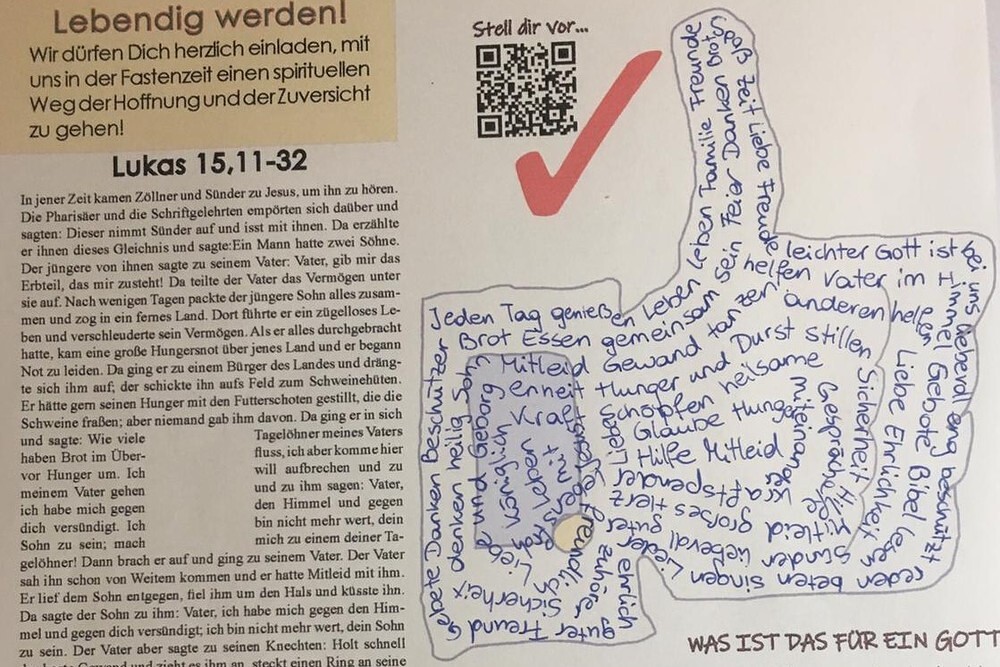 Lebendig werden!
Wir dürfen Dich herzlich einladen, mit
uns in der Fastenzeit einen spirituellen
Weg der Hoffnung und der Zuversicht
zu gehen!
Lukas 15,11-32
In jener Zeit kamen Zöllner und Sünder zu Jesus, um ihn zu hören.
Die Pharisäer und die Schriftgelehrten empörten sich daüber und
sagten: Dieser nimmt Sünder auf und isst mit ihnen. Da erzählte
er ihnen dieses Gleichnis und sagte:Ein Mann hatte zwei Söhne.
Der jüngere von ihnen sagte zu seinem Vater: Vater, gib mir das
Erbteil, das mir zusteht! Da teilte der Vater das Vermögen unter
sie auf. Nach wenigen Tagen packte der jüngere Sohn alles zusam-
men und zog in ein fernes Land. Dort führte er ein zügelloses Le-
ben und verschleuderte sein Vermögen. Als er alles durchgebracht
hatte, kam eine große Hungersnot über jenes Land und er begann
Not zu leiden. Da ging er zu einem Bürger des Landes und dräng-
te sich ihm auf; der schickte ihn aufs Feld zum Schweinehüten.
Er hätte gern seinen Hunger mit den Futterschoten gestillt, die die
Schweine fraßen; aber niemand gab ihm davon. Da ging er in sich
und sagte: Wie viele Tagelöhner meines Vaters
haben Brot im Über- fluss, ich aber komme hier
vor Hunger um. Ich will aufbrechen und zu
meinem Vater gehen und zu ihm sagen: Vater,
ich habe mich gegen den Himmel und gegen
dich versündigt. Ich bin nicht mehr wert, dein
Sohn zu sein; mach mich zu einem deiner Ta-
gelöhner! Dann brach er auf und ging zu seinem Vater. Der Vater
sah ihn schon von Weitem kommen und er hatte Mitleid mit ihm.
Er lief dem Sohn entgegen, fiel ihm um den Hals und küsste ihn.
Da sagte der Sohn zu ihm: Vater, ich habe mich gegen den Him-
mel und gegen dich versündigt; ich bin nicht mehr wert, dein Sohn
zu sein. Der Vater aber sagte zu seinen Knechten: Holt schnell
Gewand und zieht es ihm an, steckt einen Ring an seine
Stell dir vor...
Jeden Tag genießen Leben Leben Familie Freunde
Brot Essen gemeinsam sein Feier Danken Brot
Spaß Zeit Liebe Freude leichter Gott ist bei uns Ueberall eng beschützt
Mitleid Gewand tanzen
helfen Vater im Himmel Gebote Bibel lesen
anderen helfen Liebe Ehrlichkeit
Hunger und Durst stillen Sicherheit
schöpfen heilsame Gespräche
Glaube Hunger miteinander
Hilfe Mitleid
Kraftspender
großes Herz Mitleid
guter Sünder
reden beten singen Lieder Ueberall
ehrlich
Zuhörer
guter Freund
freundlich
Sicherheit
Gebete Danken Beschützer
denken heilig Sohn
und Geborgenheit
königlich Kraft
WAS IST DAS FÜR EIN GOTT